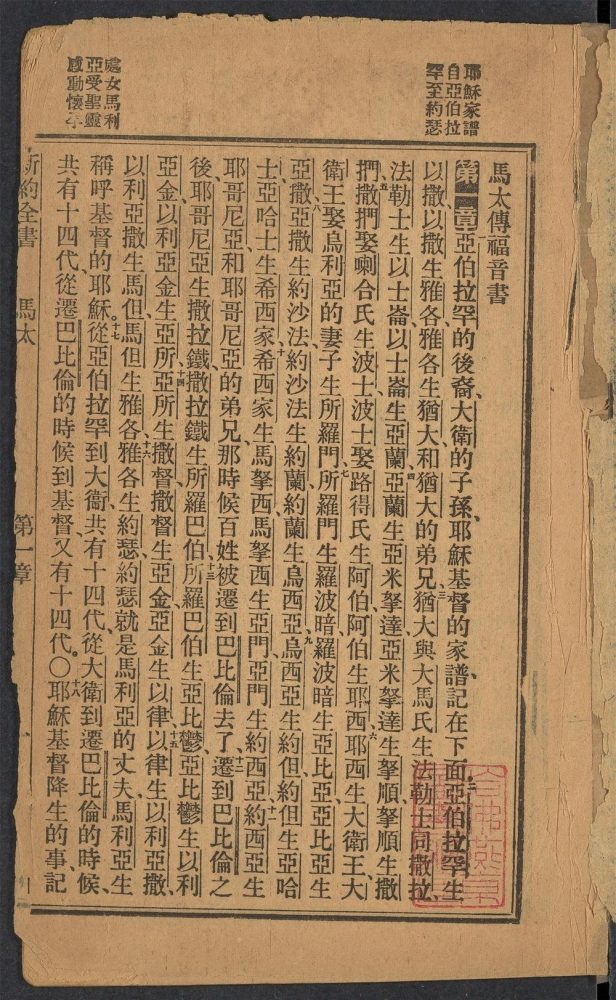 耶穌家譜
自亞伯拉
罕至約瑟
處女馬利
亞受聖靈
感動懷孕
馬太傳福音書
第一章一亞伯拉罕的後裔、大衛的子孫、耶穌基督的家譜、記在下面、二亞伯拉罕生
以撒、以撒生雅各、雅各生猶大和猶大的弟兄、三猶大與大馬氏生法勒士同撒拉、
法勒士生以士崙、以士崙生亞蘭、四亞蘭生亞米拏達、亞米拏達生拏順、拏順生撒
捫、五撒捫娶喇合氏生波士、波士娶路得氏生阿伯、阿伯生耶西、六耶西生大衛王、大
衛王娶烏利亞的妻子生所羅門、七所羅門生羅波暗、羅波暗生亞比亞、亞比亞生
亞撒、八亞撒生約沙法、約沙法生約蘭、約蘭生烏西亞、九烏西亞生約但、約但生亞哈
士、亞哈士生希西家、十希西家生馬拏西、馬拏西生亞門、亞門生約西亞、十一約西亞生
耶哥尼亞和耶哥尼亞的弟兄、那時候百姓被遷到巴比倫去了、十二遷到巴比倫之
後、耶哥尼亞生撒拉鐵、撒拉鐵生所羅巴伯、十三所羅巴伯生亞比鬱、亞比鬱生以利
亞金、以利亞金生亞所、十四亞所生撒督、撒督生亞金、亞金生以律、十五以律生以利亞撒、
以利亞撒生馬但、馬但生雅各、十六雅各生約瑟、約瑟就是馬利亞的丈夫、馬利亞生
稱呼基督的耶穌。十七從亞伯拉罕到大衛、共有十四代、從大衛到遷巴比倫的時候、
共有十四代、從遷巴比倫的時候到基督、又有十四代。〇十八耶穌基督降生的事、記
新約全書 馬太 第一章 一